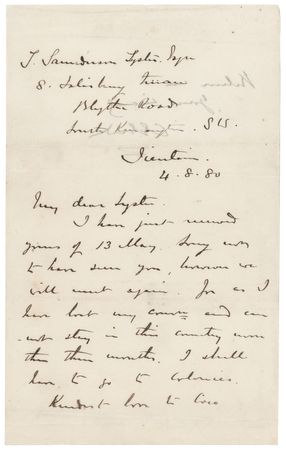 T. Saunderson Lyster. Esqre
8. Salisbury Terrace
Blythe Road
South Kensington. S.W.
Tientsin.
4.8.80
My dear Lyster.
I have just received
yours of 13 May. Sorry not
to have seen you, however we
will meet again. for as I
have lost my and can
-not stay in this country more
than three months. I shall
have to go to Colonies.
Kindest love to Coco